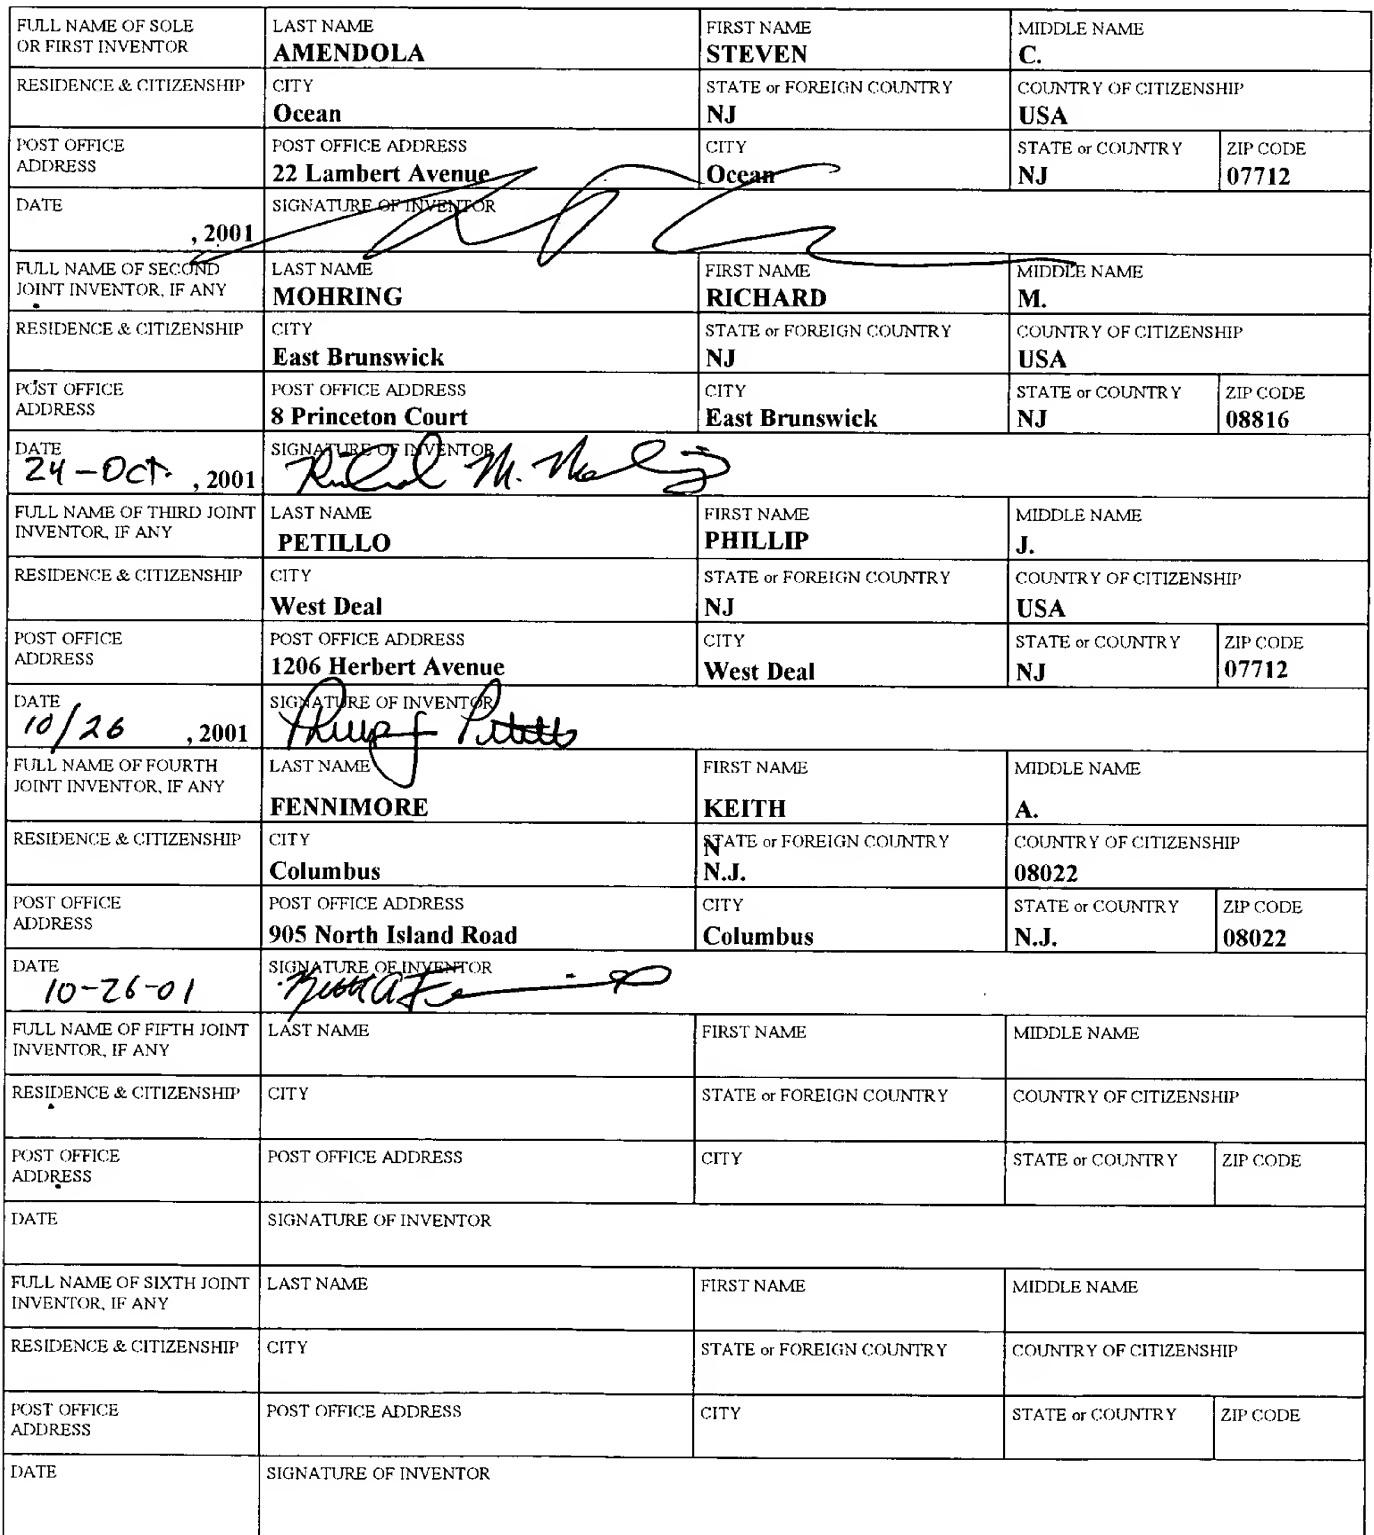 FULL NAME OF SOLE OR FIRST INVENTOR
LAST NAME AMENDOLA
FIRST NAME STEVEN
MIDDLE NAME C.
RESIDENCE & CITIZENSHIP
CITY Ocean
STATE or FOREIGN COUNTRY NJ
COUNTRY OF CITIZENSHIP USA
POST OFFICE ADDRESS
POST OFFICE ADDRESS 22 Lambert Avenue
CITY Ocean
STATE or COUNTRY NJ
ZIP CODE 07712
DATE , 2001
SIGNATURE OF INVENTOR
FULL NAME OF SECOND JOINT INVENTOR, IF ANY
LAST NAME MOHRING
FIRST NAME RICHARD
MIDDLE NAME M.
RESIDENCE & CITIZENSHIP
CITY East Brunswick
STATE or FOREIGN COUNTRY NJ
COUNTRY OF CITIZENSHIP USA
POST OFFICE ADDRESS
POST OFFICE ADDRESS 8 Princeton Court
CITY East Brunswick
STATE or COUNTRY NJ
ZIP CODE 08816
DATE 24-Oct. , 2001
SIGNATURE OF INVENTOR Richard M. Mohring
FULL NAME OF THIRD JOINT INVENTOR, IF ANY
LAST NAME PETILLO
FIRST NAME PHILLIP
MIDDLE NAME J.
RESIDENCE & CITIZENSHIP
CITY West Deal
STATE or FOREIGN COUNTRY NJ
COUNTRY OF CITIZENSHIP USA
POST OFFICE ADDRESS
POST OFFICE ADDRESS 1206 Herbert Avenue
CITY West Deal
STATE or COUNTRY NJ
ZIP CODE 07712
DATE 10/26 , 2001
SIGNATURE OF INVENTOR Phillip J Petillo
FULL NAME OF FOURTH JOINT INVENTOR, IF ANY
LAST NAME FENNIMORE
FIRST NAME KEITH
MIDDLE NAME A.
RESIDENCE & CITIZENSHIP
CITY Columbus
STATE or FOREIGN COUNTRY N N.J.
COUNTRY OF CITIZENSHIP 08022
POST OFFICE ADDRESS
POST OFFICE ADDRESS 905 North Island Road
CITY Columbus
STATE or COUNTRY N.J.
ZIP CODE 08022
DATE 10-26-01
SIGNATURE OF INVENTOR Keith A
FULL NAME OF FIFTH JOINT INVENTOR, IF ANY
LAST NAME
FIRST NAME
MIDDLE NAME
RESIDENCE & CITIZENSHIP
CITY
STATE or FOREIGN COUNTRY
COUNTRY OF CITIZENSHIP
POST OFFICE ADDRESS
POST OFFICE ADDRESS
CITY
STATE or COUNTRY
ZIP CODE
DATE
SIGNATURE OF INVENTOR
FULL NAME OF SIXTH JOINT INVENTOR, IF ANY
LAST NAME
FIRST NAME
MIDDLE NAME
RESIDENCE & CITIZENSHIP
CITY
STATE or FOREIGN COUNTRY
COUNTRY OF CITIZENSHIP
POST OFFICE ADDRESS
POST OFFICE ADDRESS
CITY
STATE or COUNTRY
ZIP CODE
DATE
SIGNATURE OF INVENTOR